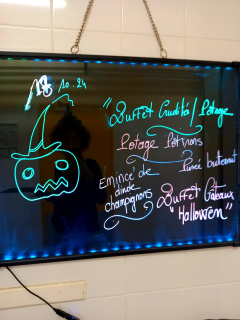 10.24
"Buffet Crudité / Potage
Potage Potirons
Purée butternut
Emincé de
dinde
champignons
Buffet Gâteaux
"Halloween"